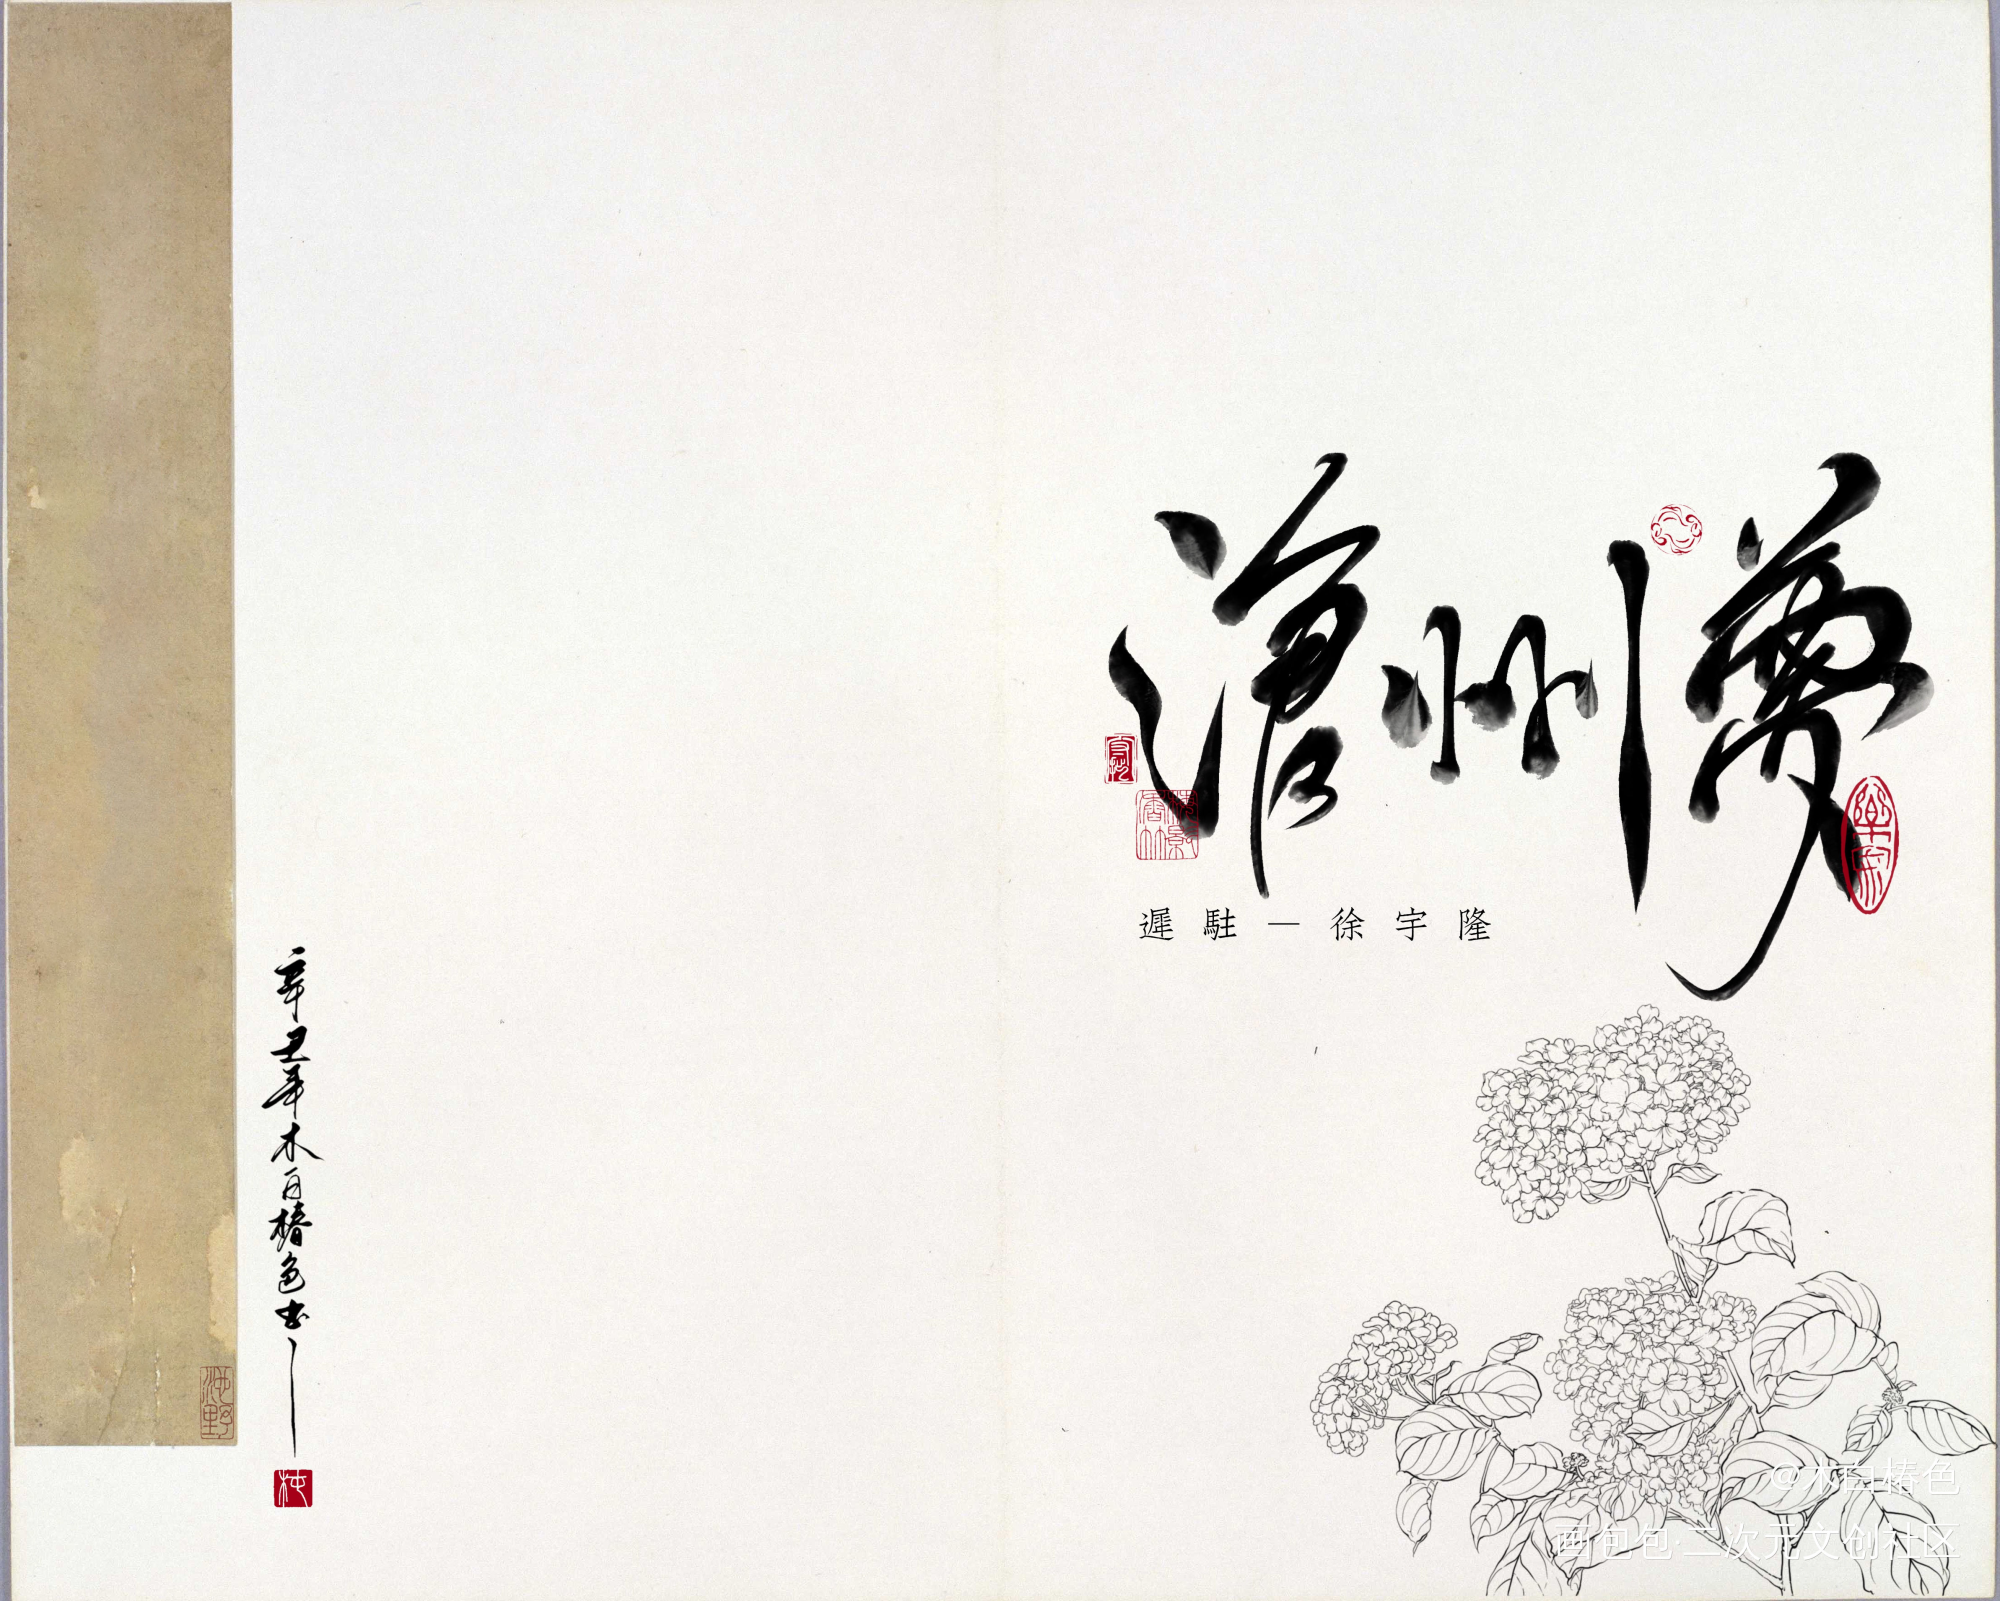 滄州夢
遲駐—徐宇隆
辛丑年木白椿色书
樂安
海野
@木白椿色
画旬包·二次元文创社区